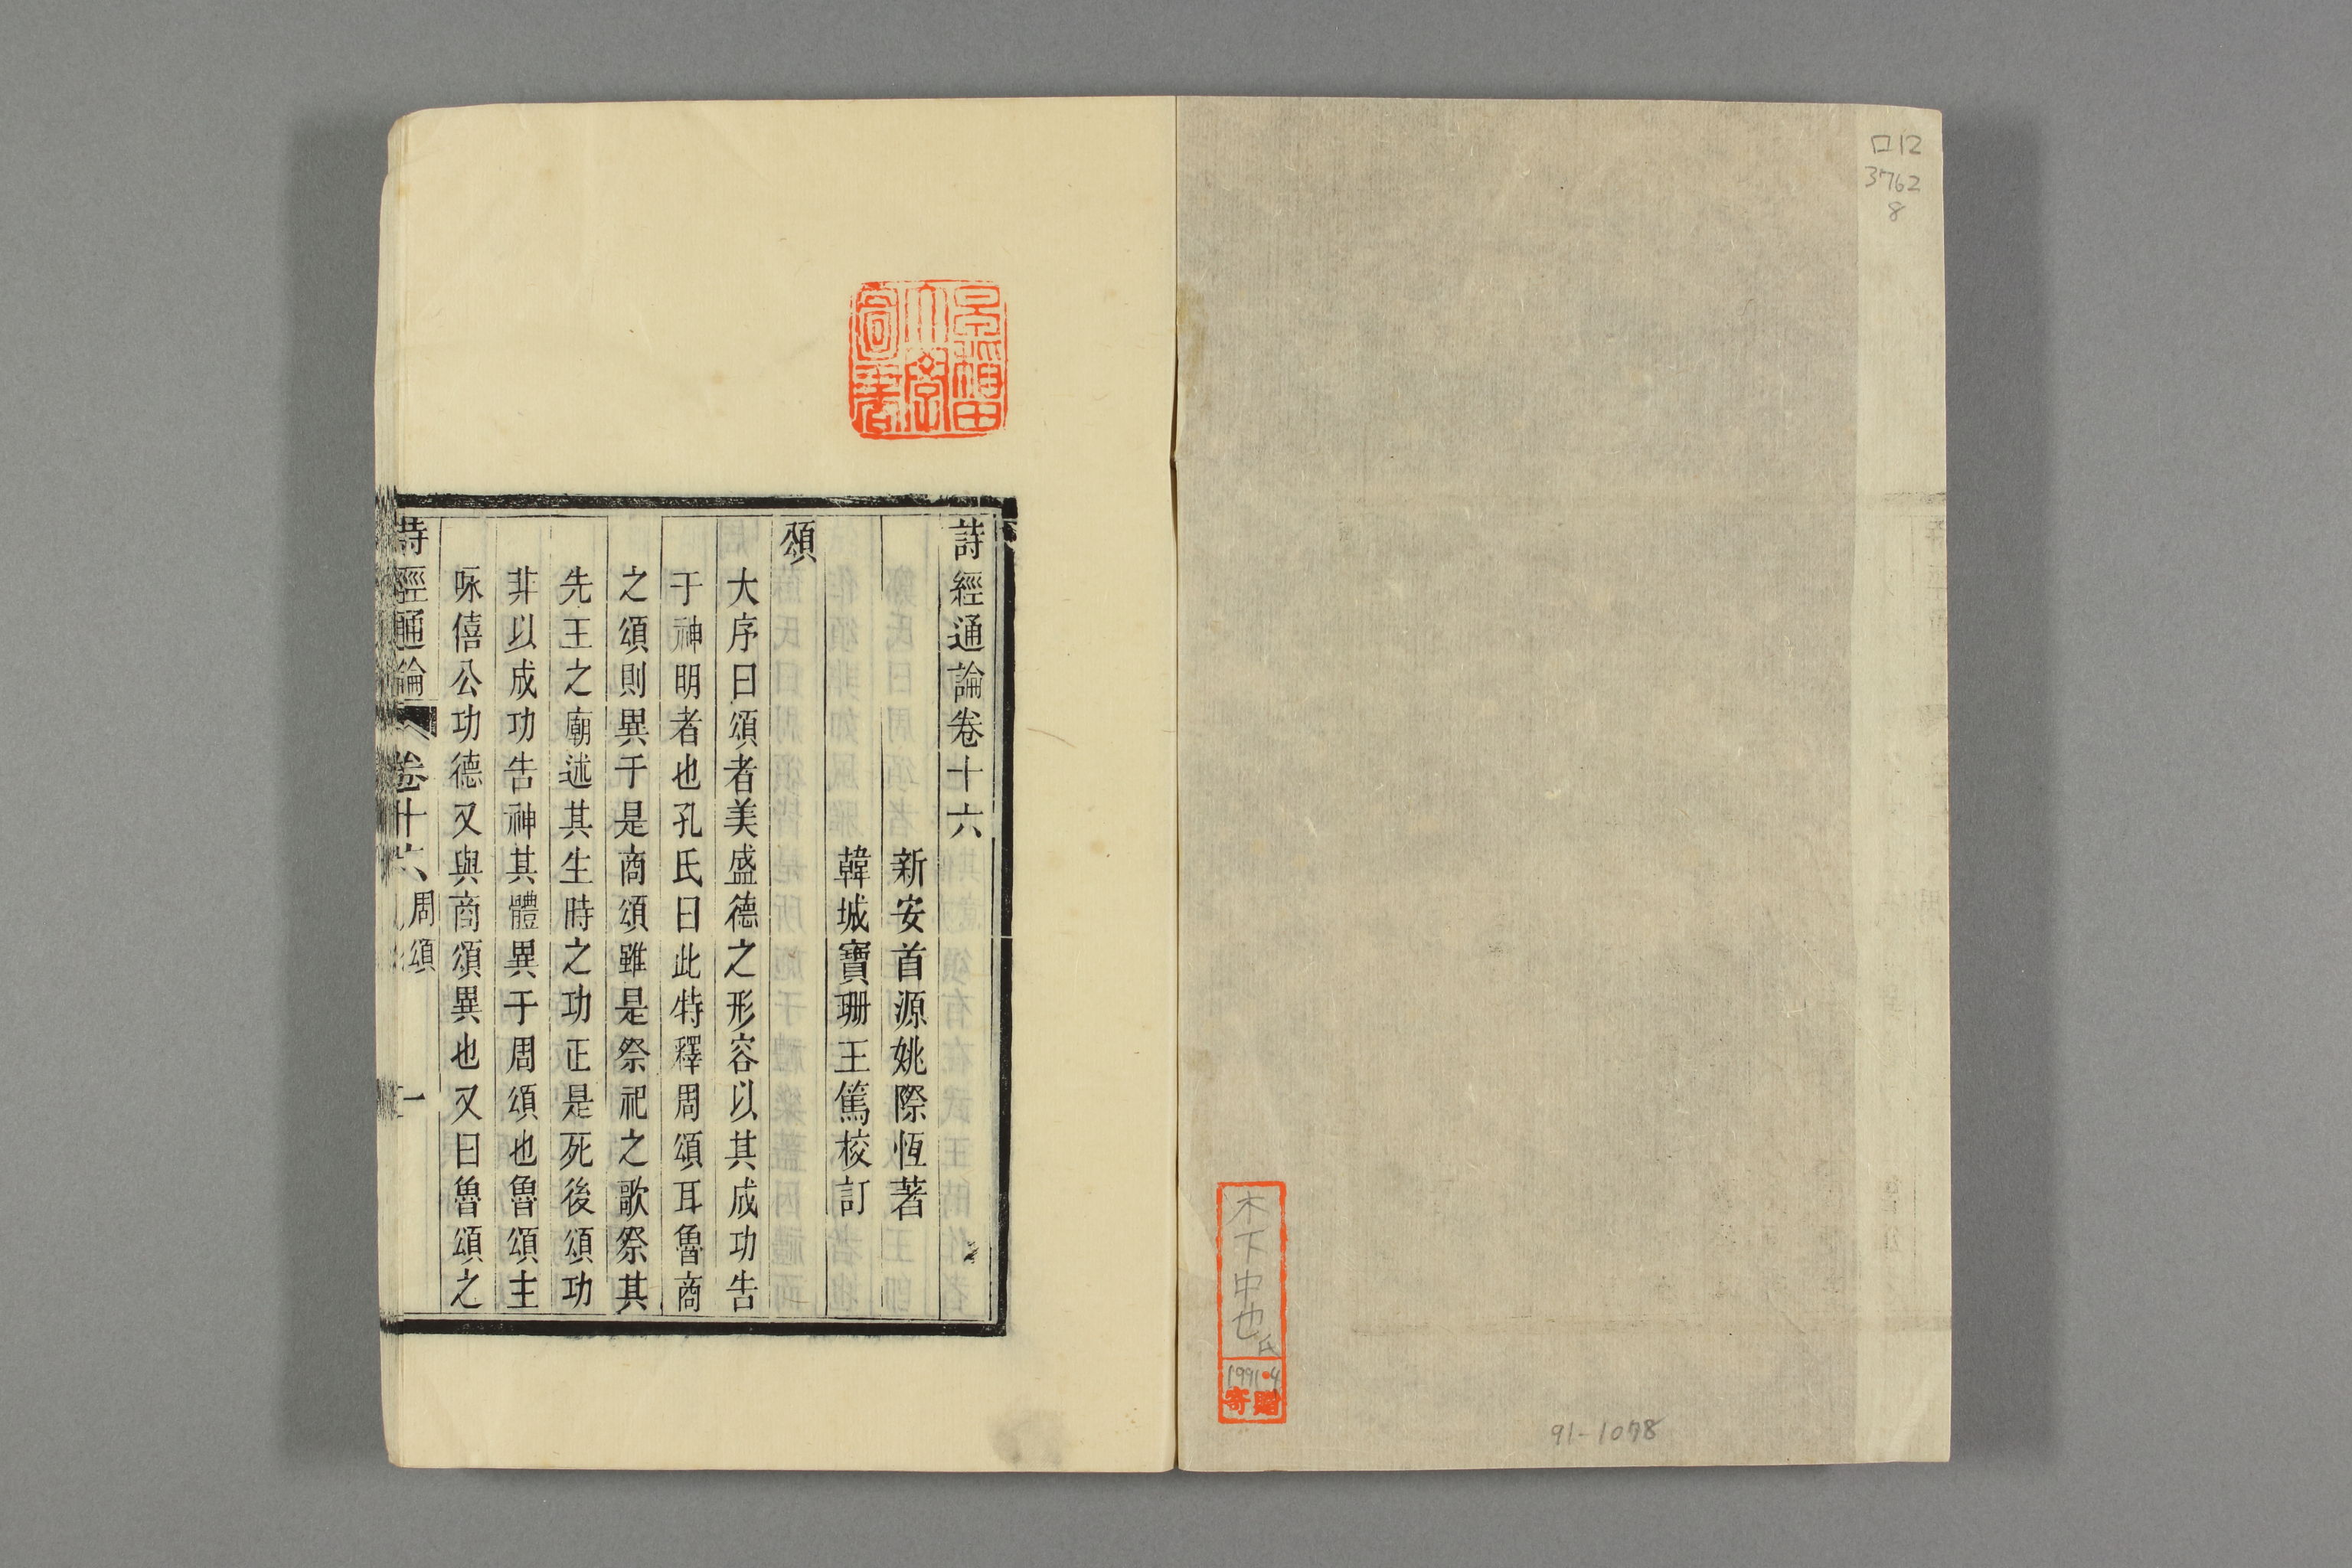 ロ12
3762
8
木下中也氏
1991.4
寄贈
91-1078
早稲田
大學
圖書
詩經通論卷十六
新安首源姚際恆著
韓城寶珊王篤校訂
頌
大序曰頌者美盛德之形容以其成功告
于神明者也孔氏曰此特釋周頌耳魯商
之頌則異于是商頌雖是祭祀之歌祭其
先王之廟述其生時之功正是死後頌功
非以成功告神其體異于周頌也魯頌主
咏僖公功德又與商頌異也又曰魯頌之
詩經通論 卷十六 周頌 一